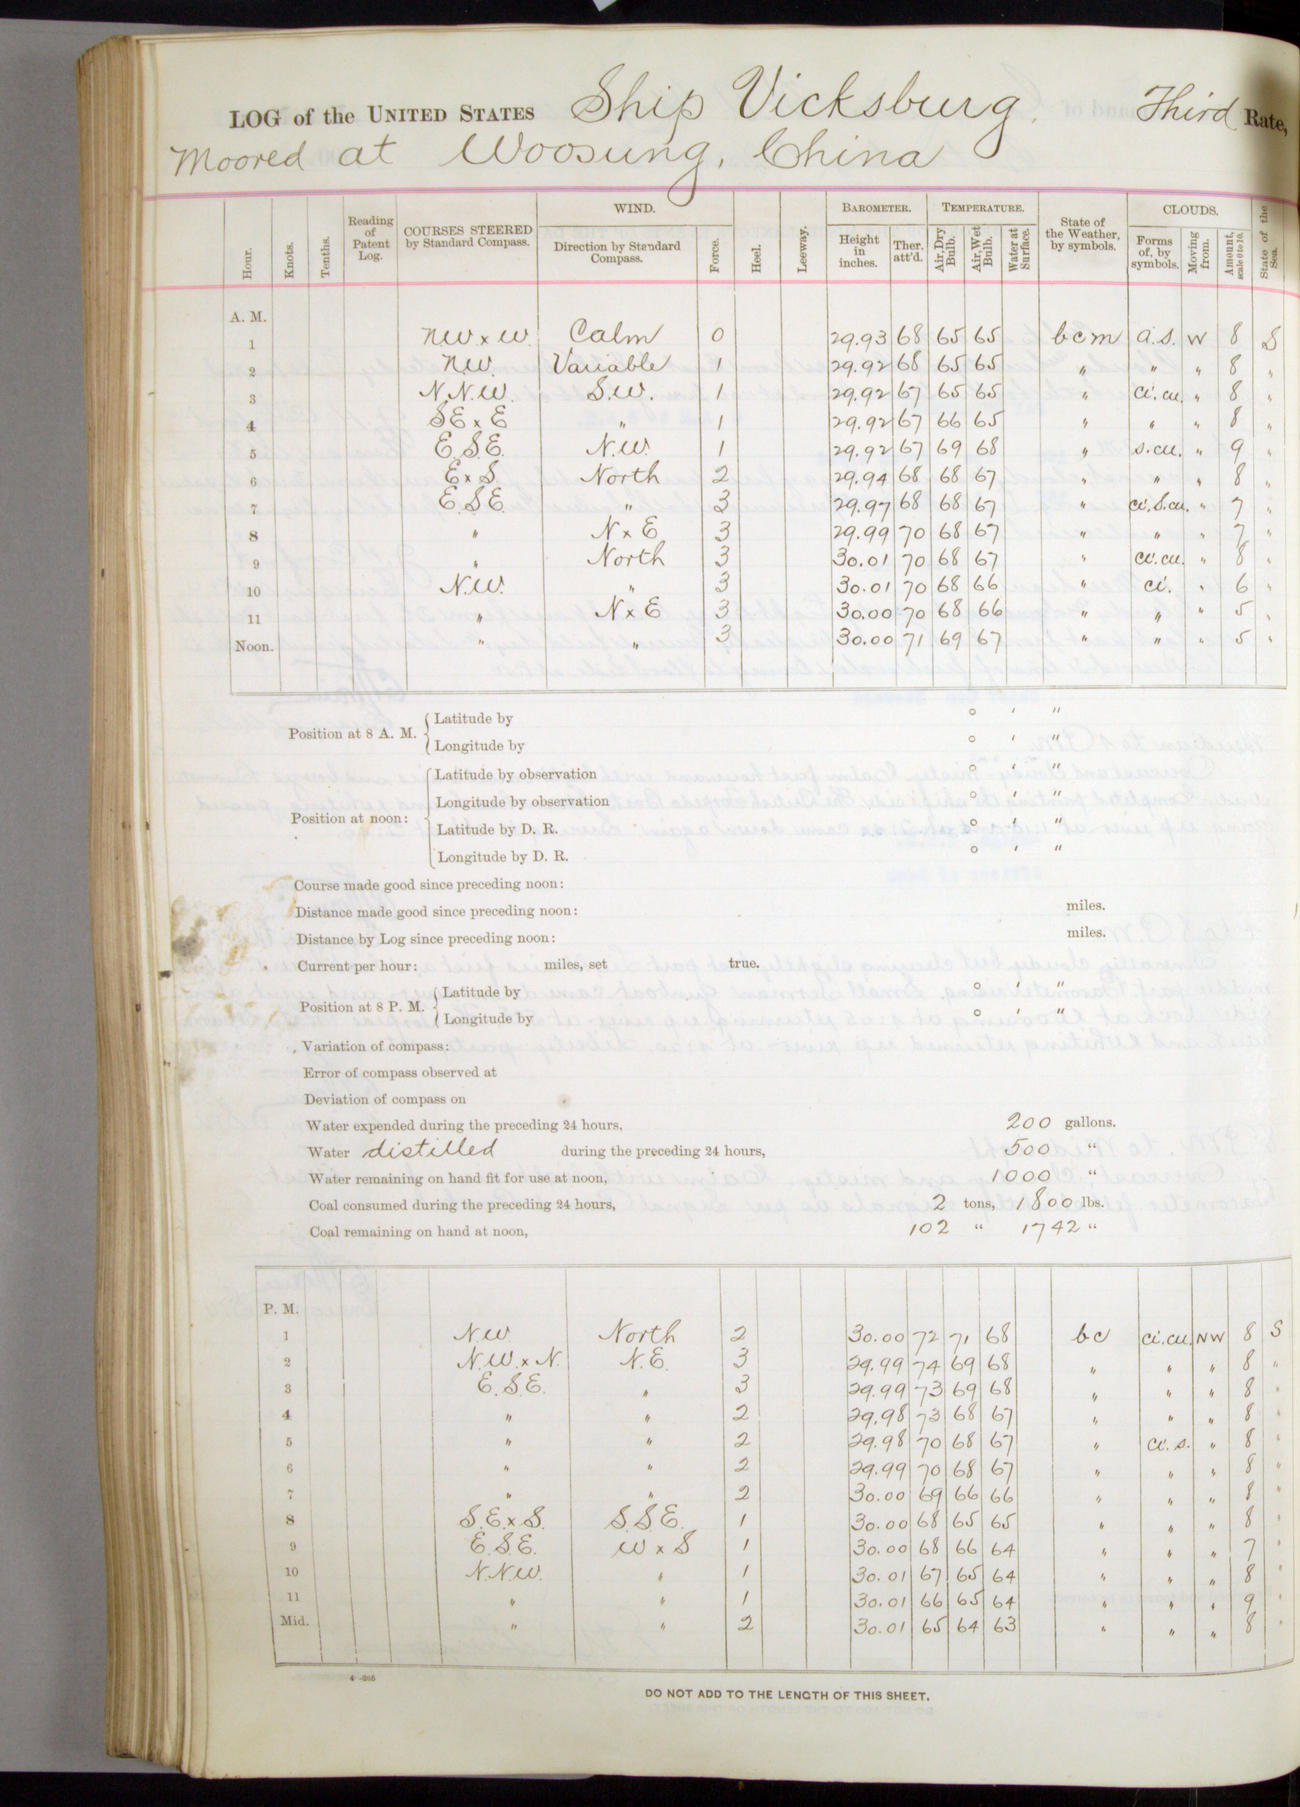 LOG of the UNITED STATES Ship Vicksburg, Third Rate,
Moored at Woosung, China
Hour. Knots. Tenths. Reading of Patent Log. COURSES STEERED by Standard Compass. WIND. Direction by Standard Compass. Force. Heel. Leeway. BAROMETER. Height in inches. Ther. att'd. TEMPERATURE. Air, Dry Bulb. Air, Wet Bulb. Water at Surface. State of the Weather, by symbols. CLOUDS. Forms of, by symbols. Moving from. Amount, scale 0 to 10. State of the Sea.
A. M.
1 NW x W. Calm 0 29.93 68 65 65 bcm a.s. W 8 S
2 N.W. Variable 1 29.92 68 65 65 " " " 8 "
3 N.N.W. S.W. 1 29.92 67 65 65 " ci.cu. " 8 "
4 SE x E " 1 29.92 67 66 65 " " " 8 "
5 E.S.E. N.W. 1 29.92 67 69 68 " s.cu. " 9 "
6 E x S. North 2 29.94 68 68 67 " " " 8 "
7 E.S.E. " 3 29.97 68 68 67 " ci.S.cu. " 7 "
8 " N x E 3 29.99 70 68 67 " " " 7 "
9 " North 3 30.01 70 68 67 " ci.cu. " 8 "
10 N.W. " 3 30.01 70 68 66 " ci. " 6 "
11 " N x E 3 30.00 70 68 66 " " " 5 "
Noon. " " 3 30.00 71 69 67 " " " 5 "
Position at 8 A. M. Latitude by ° ' "
Longitude by ° ' "
Position at noon: Latitude by observation ° ' "
Longitude by observation ° ' "
Latitude by D. R. ° ' "
Longitude by D. R. ° ' "
Course made good since preceding noon:
Distance made good since preceding noon: miles.
Distance by Log since preceding noon: miles.
Current per hour: miles, set true.
Position at 8 P. M. Latitude by ° ' "
Longitude by ° ' "
Variation of compass:
Error of compass observed at
Deviation of compass on
Water expended during the preceding 24 hours, 200 gallons.
Water distilled during the preceding 24 hours, 500 "
Water remaining on hand fit for use at noon, 1000 "
Coal consumed during the preceding 24 hours, 2 tons, 1800 lbs.
Coal remaining on hand at noon, 102 " 1742 "
P. M.
1 N.W. North 2 30.00 72 71 68 bc ci.cu. NW 8 S
2 N.W. x N. N.E. 3 29.99 74 69 68 " " " 8 "
3 E.S.E. " 3 29.99 73 69 68 " " " 8 "
4 " " 2 29.98 73 68 67 " " " 8 "
5 " " 2 29.98 70 68 67 " ci.s. " 8 "
6 " " 2 29.99 70 68 67 " " " 8 "
7 " " 2 30.00 69 66 66 " " " 8 "
8 S.E. x S. S.S.E. 1 30.00 68 65 65 " " " 8 "
9 E.S.E. W x S 1 30.00 68 66 64 " " " 7 "
10 N.N.W. " 1 30.01 67 65 64 " " " 8 "
11 " " 1 30.01 66 65 64 " " " 9 "
Mid. " " 2 30.01 65 64 63 " " " 8 "
DO NOT ADD TO THE LENGTH OF THIS SHEET.